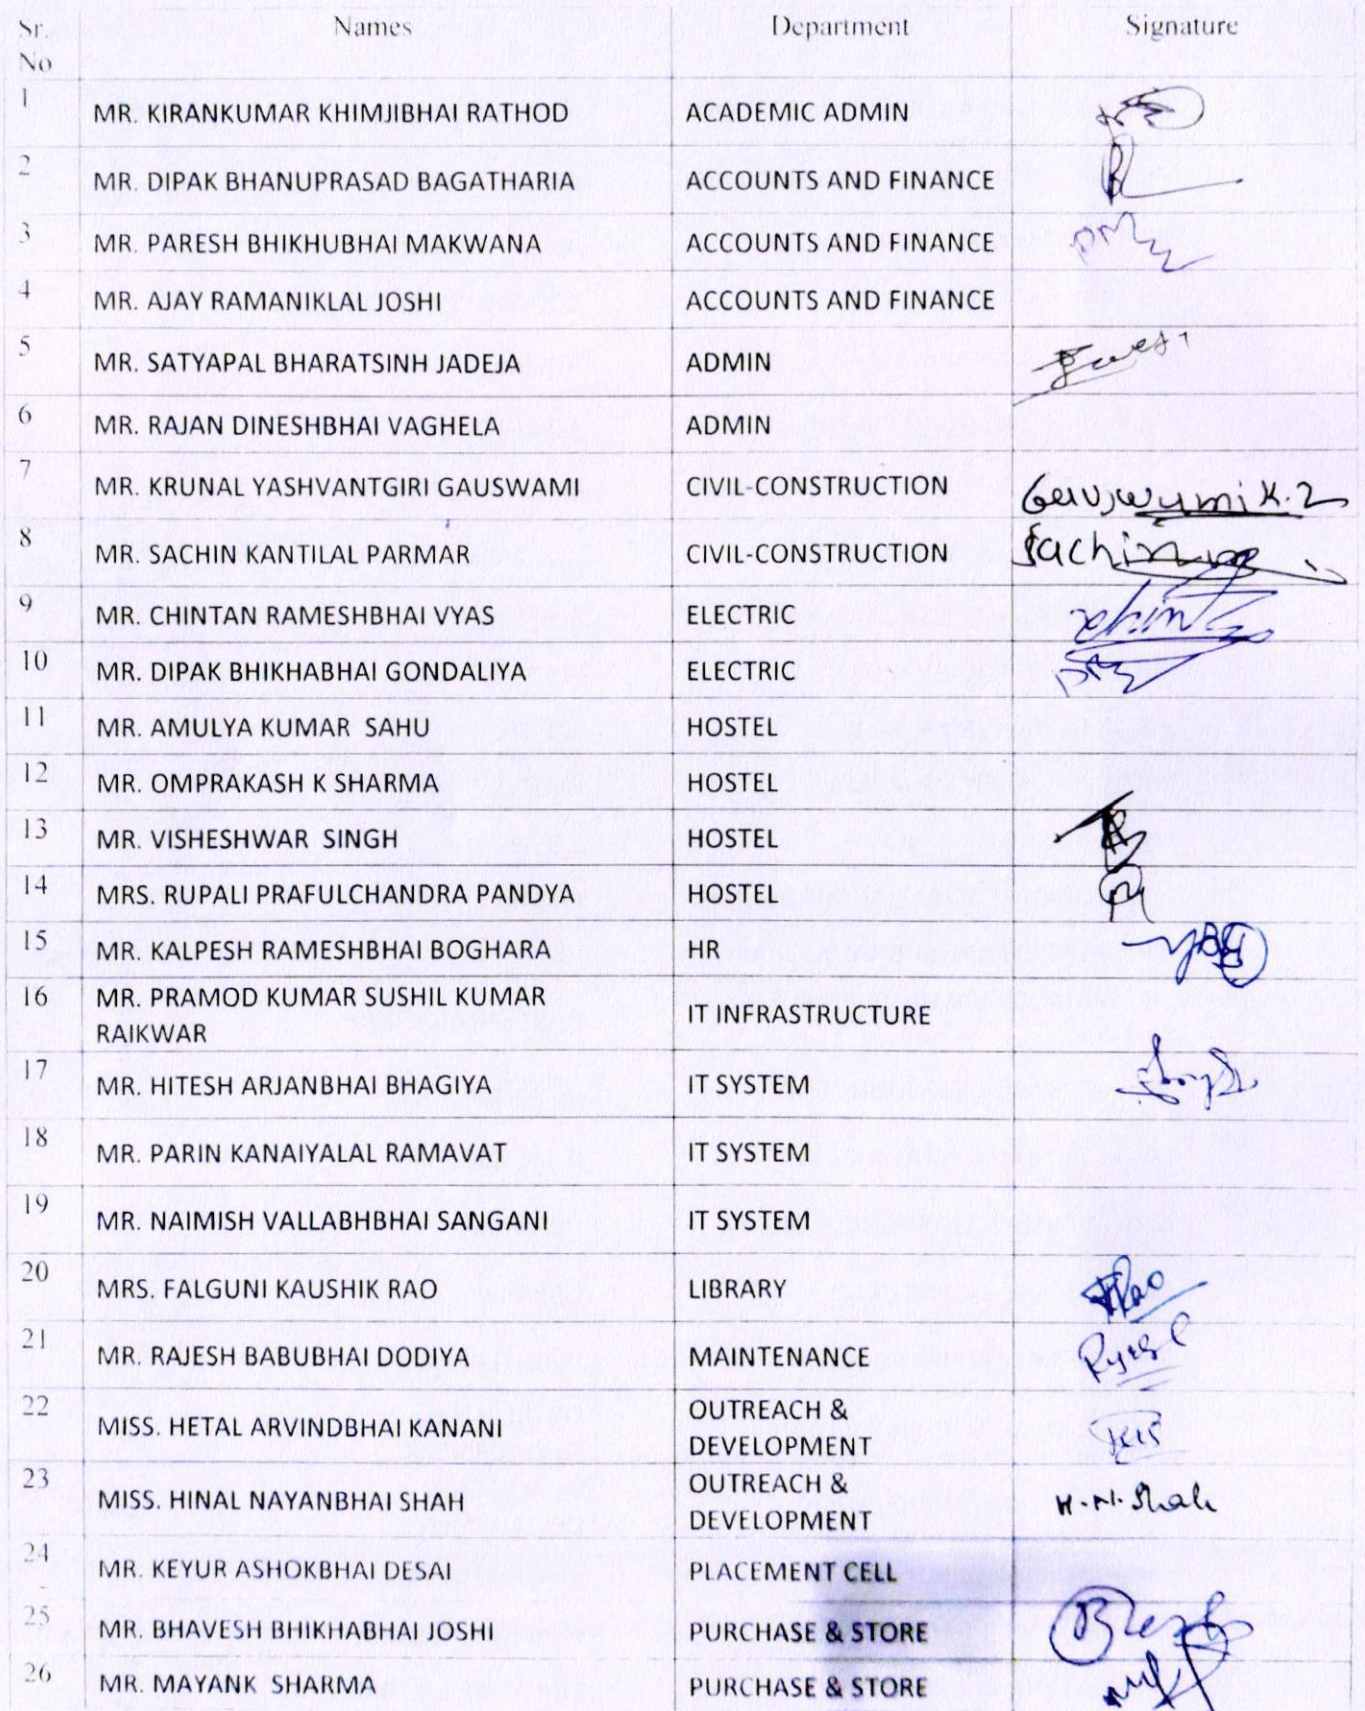 Sr. Names Department Signature
No
1 MR. KIRANKUMAR KHIMJIBHAI RATHOD ACADEMIC ADMIN
2 MR. DIPAK BHANUPRASAD BAGATHARIA ACCOUNTS AND FINANCE
3 MR. PARESH BHIKHUBHAI MAKWANA ACCOUNTS AND FINANCE
4 MR. AJAY RAMANIKLAL JOSHI ACCOUNTS AND FINANCE
5 MR. SATYAPAL BHARATSINH JADEJA ADMIN
6 MR. RAJAN DINESHBHAI VAGHELA ADMIN
7 MR. KRUNAL YASHVANTGIRI GAUSWAMI CIVIL-CONSTRUCTION
8 MR. SACHIN KANTILAL PARMAR CIVIL-CONSTRUCTION Sachin
9 MR. CHINTAN RAMESHBHAI VYAS ELECTRIC
10 MR. DIPAK BHIKHABHAI GONDALIYA ELECTRIC
11 MR. AMULYA KUMAR SAHU HOSTEL
12 MR. OMPRAKASH K SHARMA HOSTEL
13 MR. VISHESHWAR SINGH HOSTEL
14 MRS. RUPALI PRAFULCHANDRA PANDYA HOSTEL
15 MR. KALPESH RAMESHBHAI BOGHARA HR
16 MR. PRAMOD KUMAR SUSHIL KUMAR
RAIKWAR IT INFRASTRUCTURE
17 MR. HITESH ARJANBHAI BHAGIYA IT SYSTEM
18 MR. PARIN KANAIYALAL RAMAVAT IT SYSTEM
19 MR. NAIMISH VALLABHBHAI SANGANI IT SYSTEM
20 MRS. FALGUNI KAUSHIK RAO LIBRARY
21 MR. RAJESH BABUBHAI DODIYA MAINTENANCE
22 MISS. HETAL ARVINDBHAI KANANI OUTREACH &
DEVELOPMENT
23 MISS. HINAL NAYANBHAI SHAH OUTREACH &
DEVELOPMENT H.N.Shah
24 MR. KEYUR ASHOKBHAI DESAI PLACEMENT CELL
25 MR. BHAVESH BHIKHABHAI JOSHI PURCHASE & STORE
26 MR. MAYANK SHARMA PURCHASE & STORE